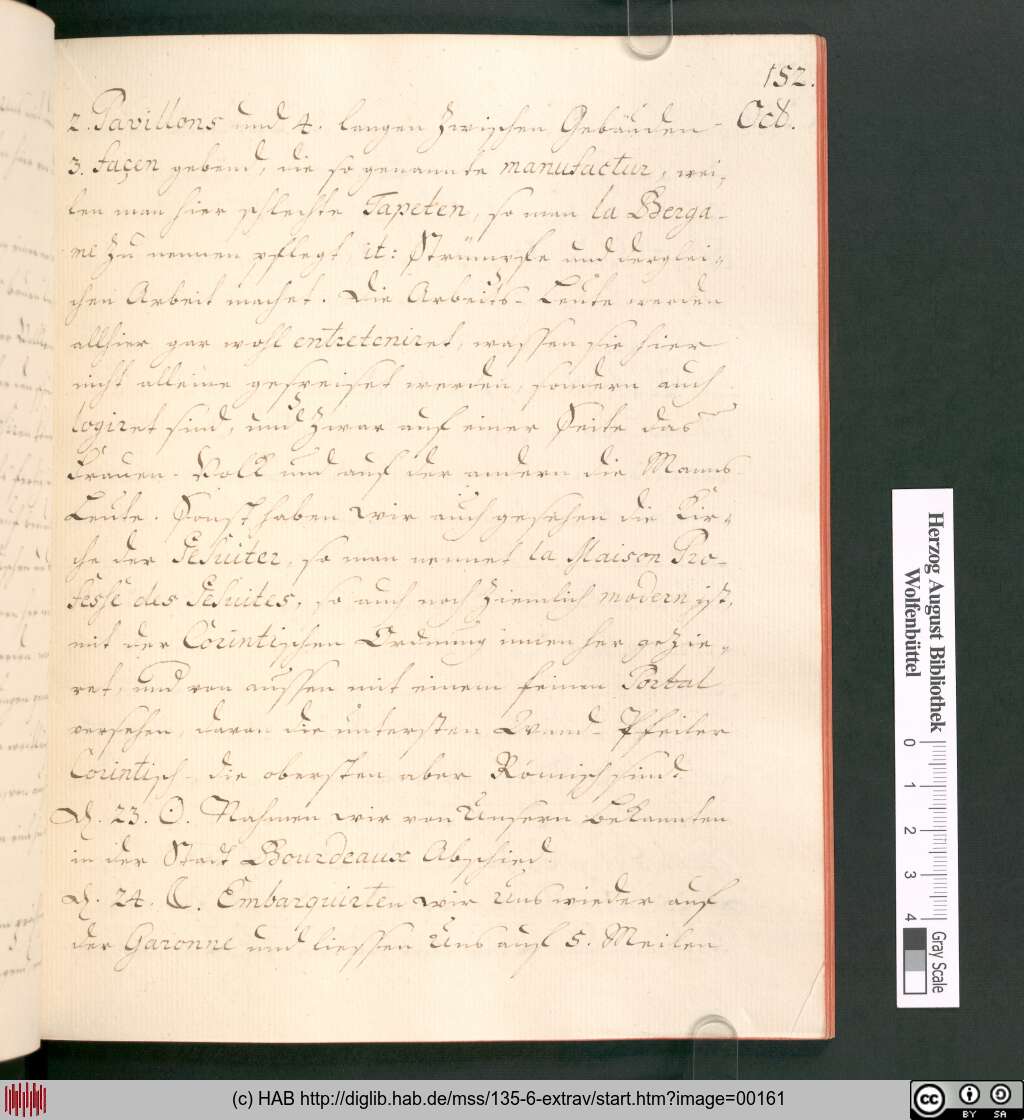 152.
Octb.
2. Pavillons und 4. langen Zwischen Gebäuden
3. façen gebend, die so genannte manufactur, wei,
len man hier schlechte Tapeten, so man la Berga-
me Zu nennen pflegt it: Strümpfe und derglei,
chen Arbeit machet. Die Arbeits-Leute werden
allhier gar wohl entreteniret, massen sie hier
nicht alleine gespeiset werden, sondern auch
logiret sind, und Zwar auf einer Seite das
Frauen-Volk und auf der andern die Manns-
Leute. Sonst haben wir auch gesehen die Kir,
che der Jesuiter, so man nennet la Maison Pro-
fesse des Jesuites, so auch noch Ziemlich modern ist,
mit der Corintischen Ordnung innen her gezie,
ret, und von aussen mit einem feinen Portal
versehen, daran die untersten Wand-Pfeiler
Corintisch, die obersten aber Römisch sind.
D. 23. ☉. Nahmen wir von Unsern Bekannten
in der Stadt Bourdeaux Abschied.
D. 24. ☾. Embarquirten wir Uns wieder auf
der Garonne und liessen Uns auf 5. Meilen
Herzog August Bibliothek
Wolfenbüttel
0 1 2 3 4
Gray Scale
(c) HAB http://diglib.hab.de/mss/135-6-extrav/start.htm?image=00161
cc BY SA